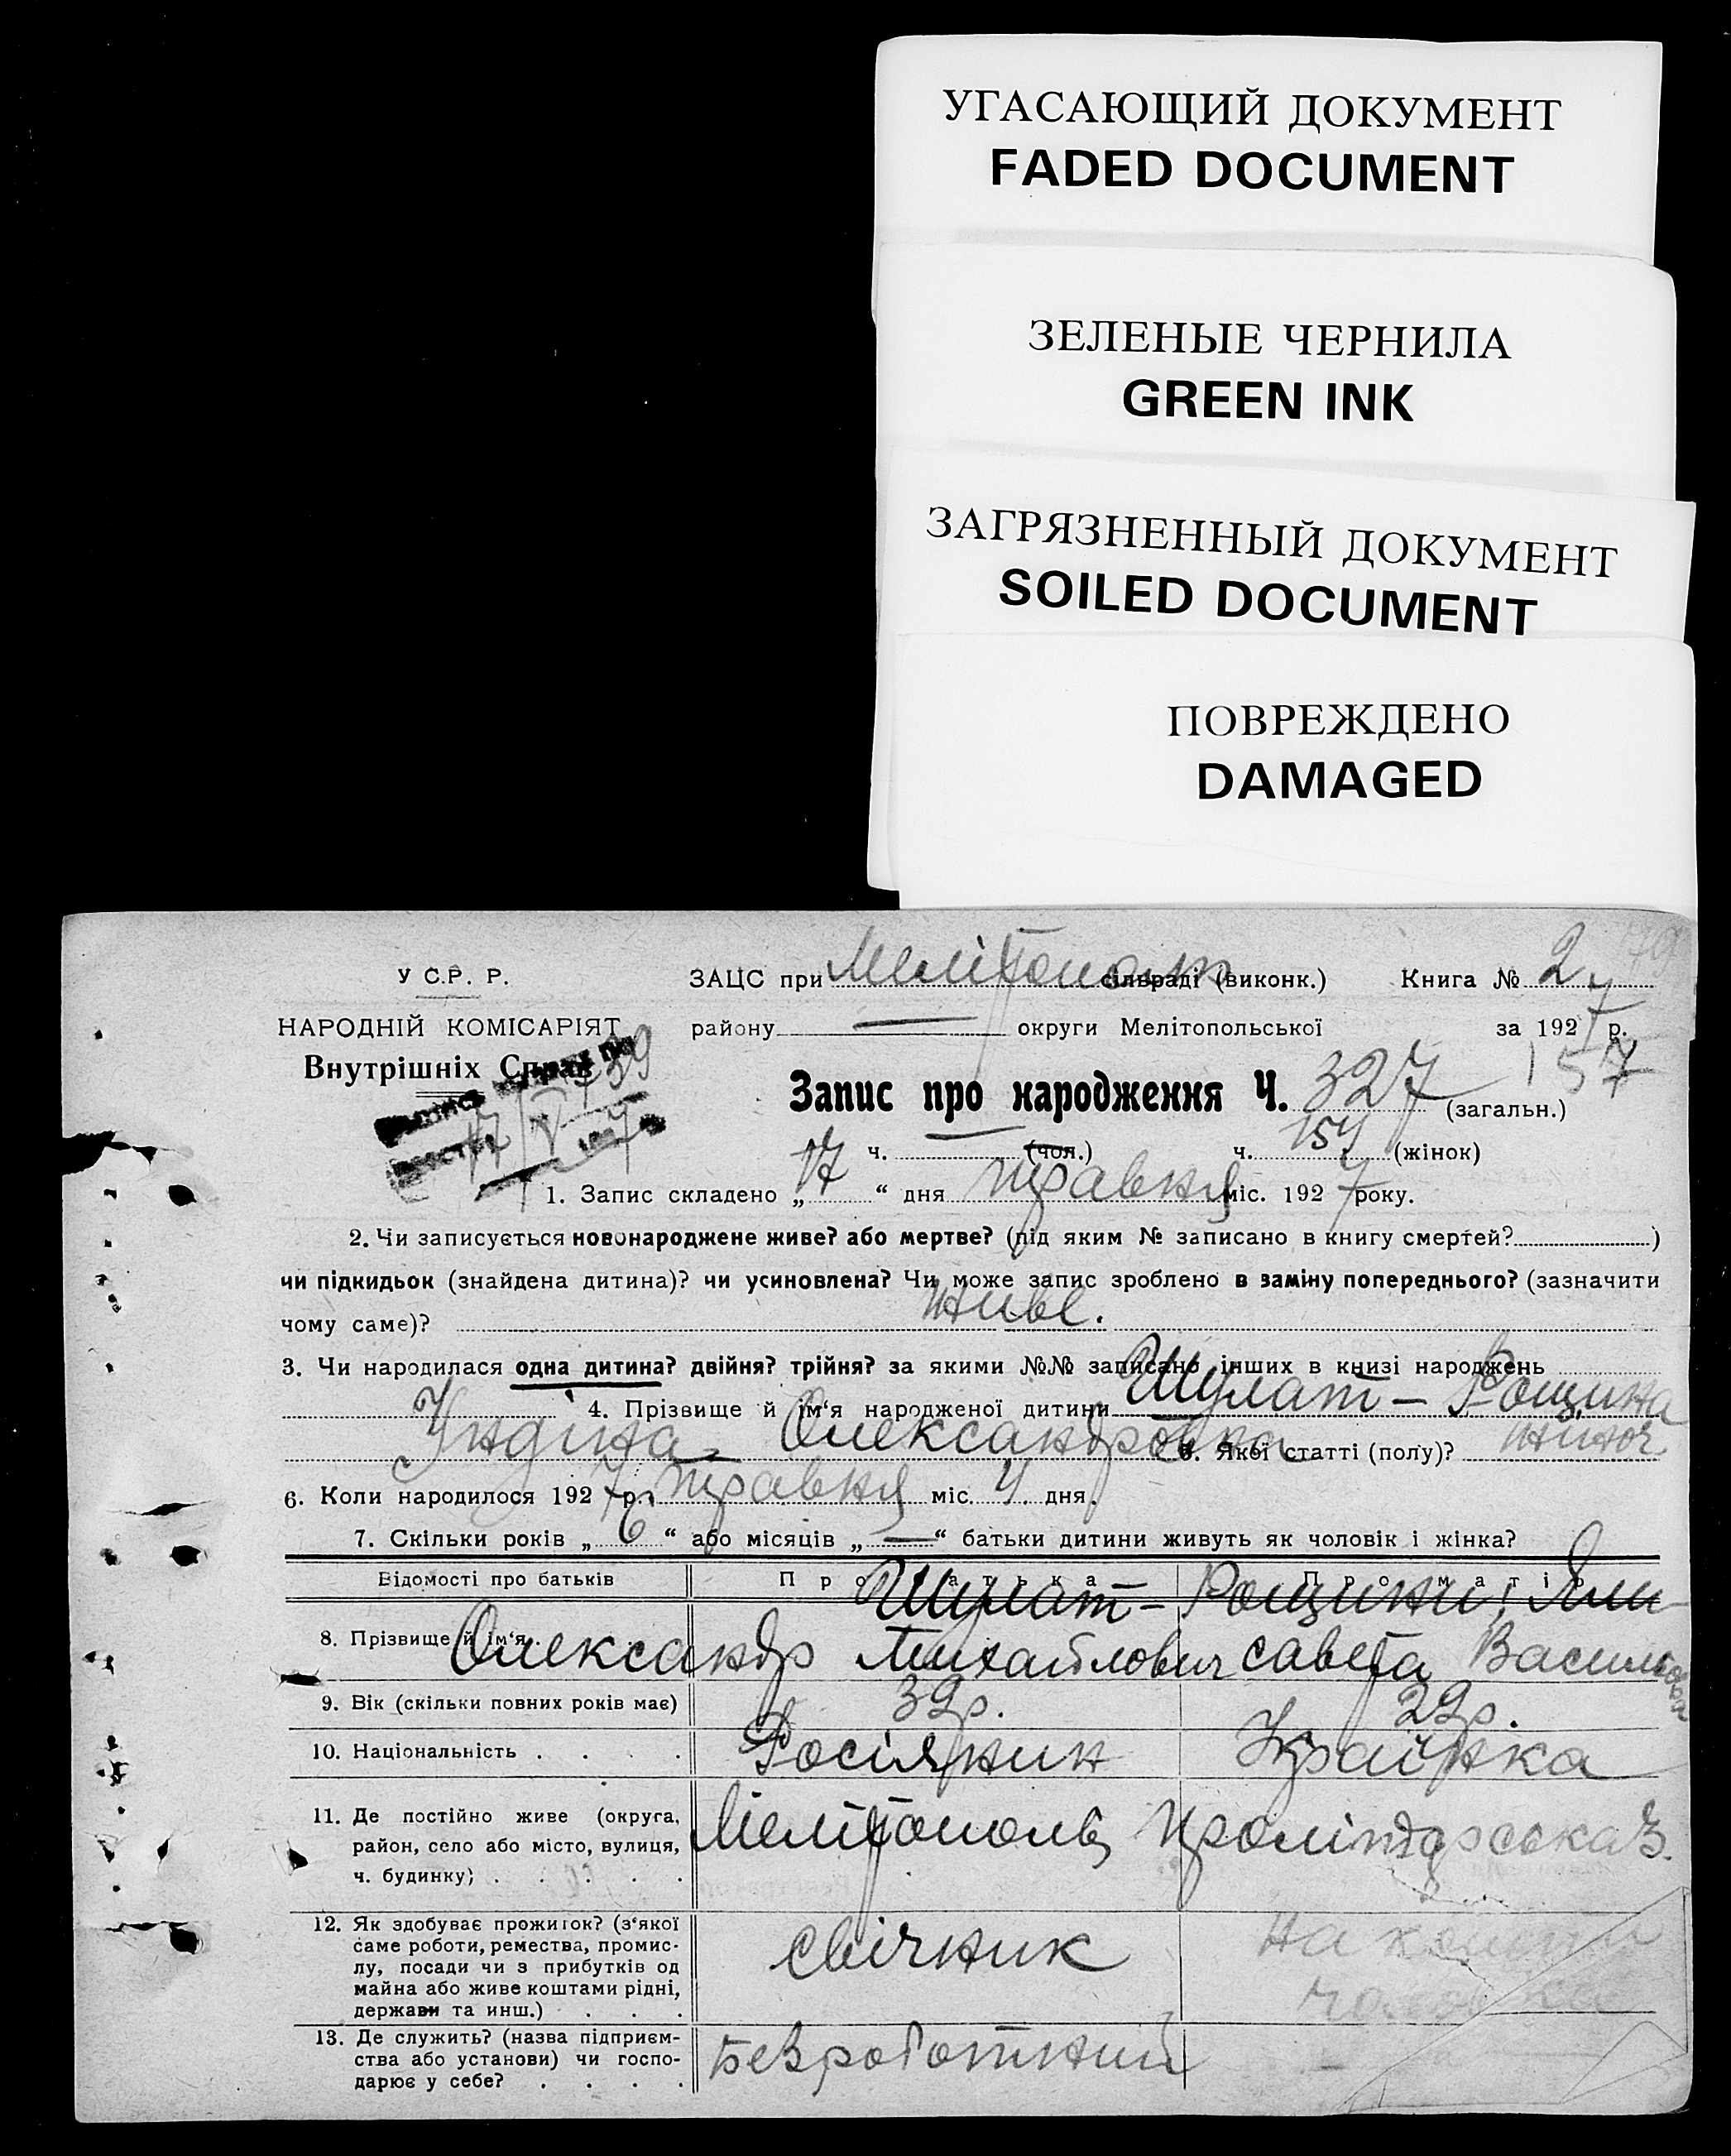 УГАСАЮЩИЙ ДОКУМЕНТ
FADED DOCUMENT
ЗЕЛЕНЫЕ ЧЕРНИЛА
GREEN INK
ЗАГРЯЗНЕННЫЙ ДОКУМЕНТ
SOILED DOCUMENT
ПОВРЕЖДЕНО
DAMAGED
У С.Р. Р.
НАРОДНІЙ КОМІСАРІЯТ
Внутрішніх Справ
ЗАЦС при Мелітополь сільвраді (виконк.) Книга № 2
району — округи Мелітопольської за 1927 р.
157
Запис про народження Ч. 327 (загальн.)
ч. — (чол.) ч. 157 (жінок)
1. Запис складено „17“ дня травня міс. 1927 року.
2. Чи записується новонароджене живе? або мертве? (під яким № записано в книгу смертей? )
чи підкидьок (знайдена дитина)? чи усиновлена? Чи може запис зроблено в заміну попереднього? (зазначити
чому саме)? живе.
3. Чи народилася одна дитина? двійня? трійня? за якими №№ записано інших в книзі народжень
4. Прізвище й ім‘я народженої дитини Шулат - Рощина
Ундіна Олександровна 5. Якої статті (полу)? жіноч.
6. Коли народилося 1927 р. травня міс. 4 дня.
7. Скільки років „6“ або місяців „—“ батьки дитини живуть як чоловік і жінка?
Відомості про батьків Про батька Про матір
Шулат - Рощини; Єли-
8. Прізвище й ім‘я. Олександр Михайлович савета Васильовна
9. Вік (скільки повних років має) 39р. 29р.
10. Національність . . . . Росіянин Українка
11. Де постійно живе (округа,
район, село або місто, вулиця,
ч. будинку) . . . . . Мелітополь, Пролітарська 3.
12. Як здобуває прожиток? (з‘якої
саме роботи, ремества, промис-
лу, посади чи з прибутків од
майна або живе коштами рідні,
держави та инш.) . . .
свічник
На кошти
чоловіка
13. Де служить? (назва підприєм-
ства або установи) чи госпо-
дарює у себе? . . . .
Безроботний
—